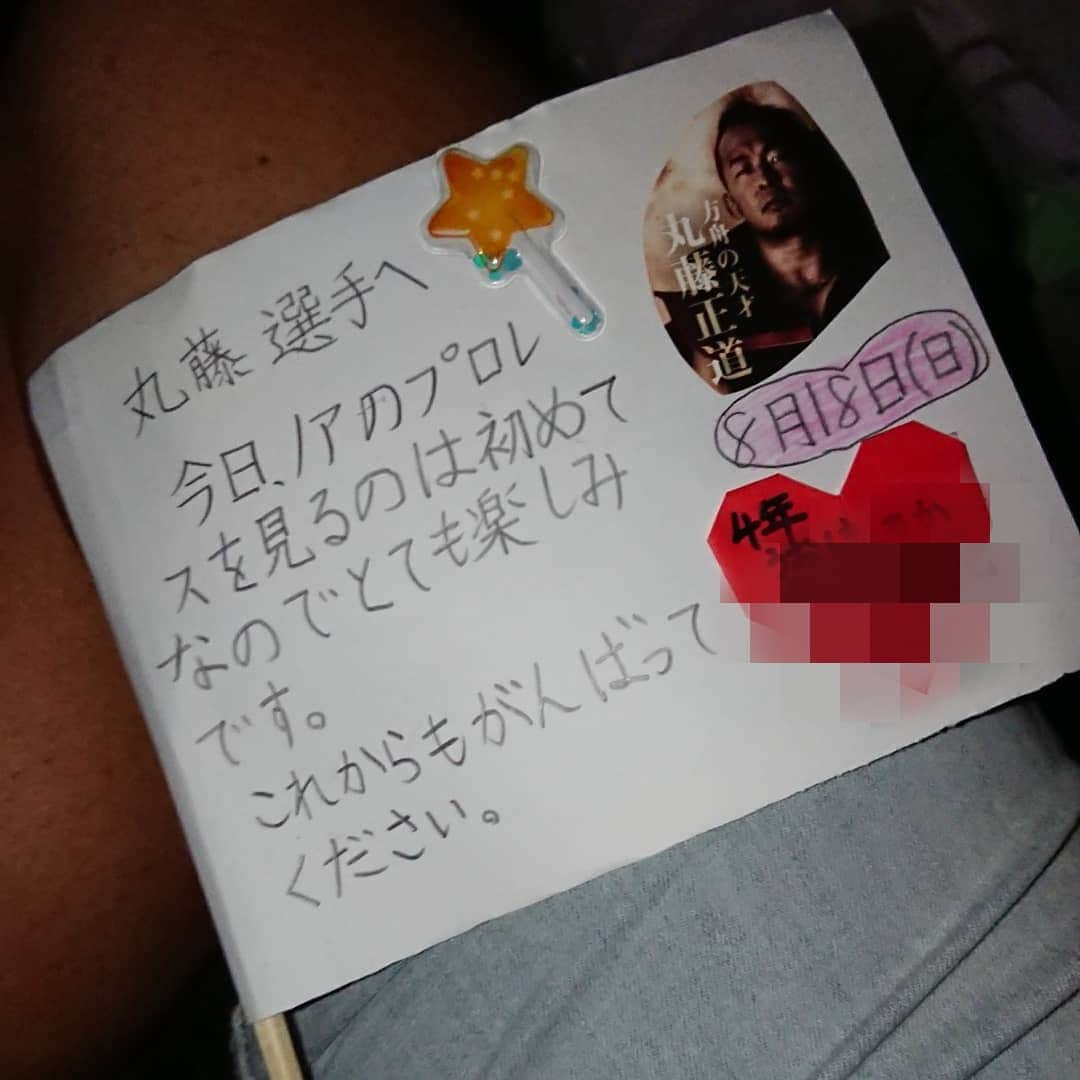 丸藤選手へ
今日、ノアのプロレ
スを見るのは初めて
なのでとても楽しみ
です。
これからもがんばって
ください。
方舟の天才
丸藤正道
8月18日(日)
4年